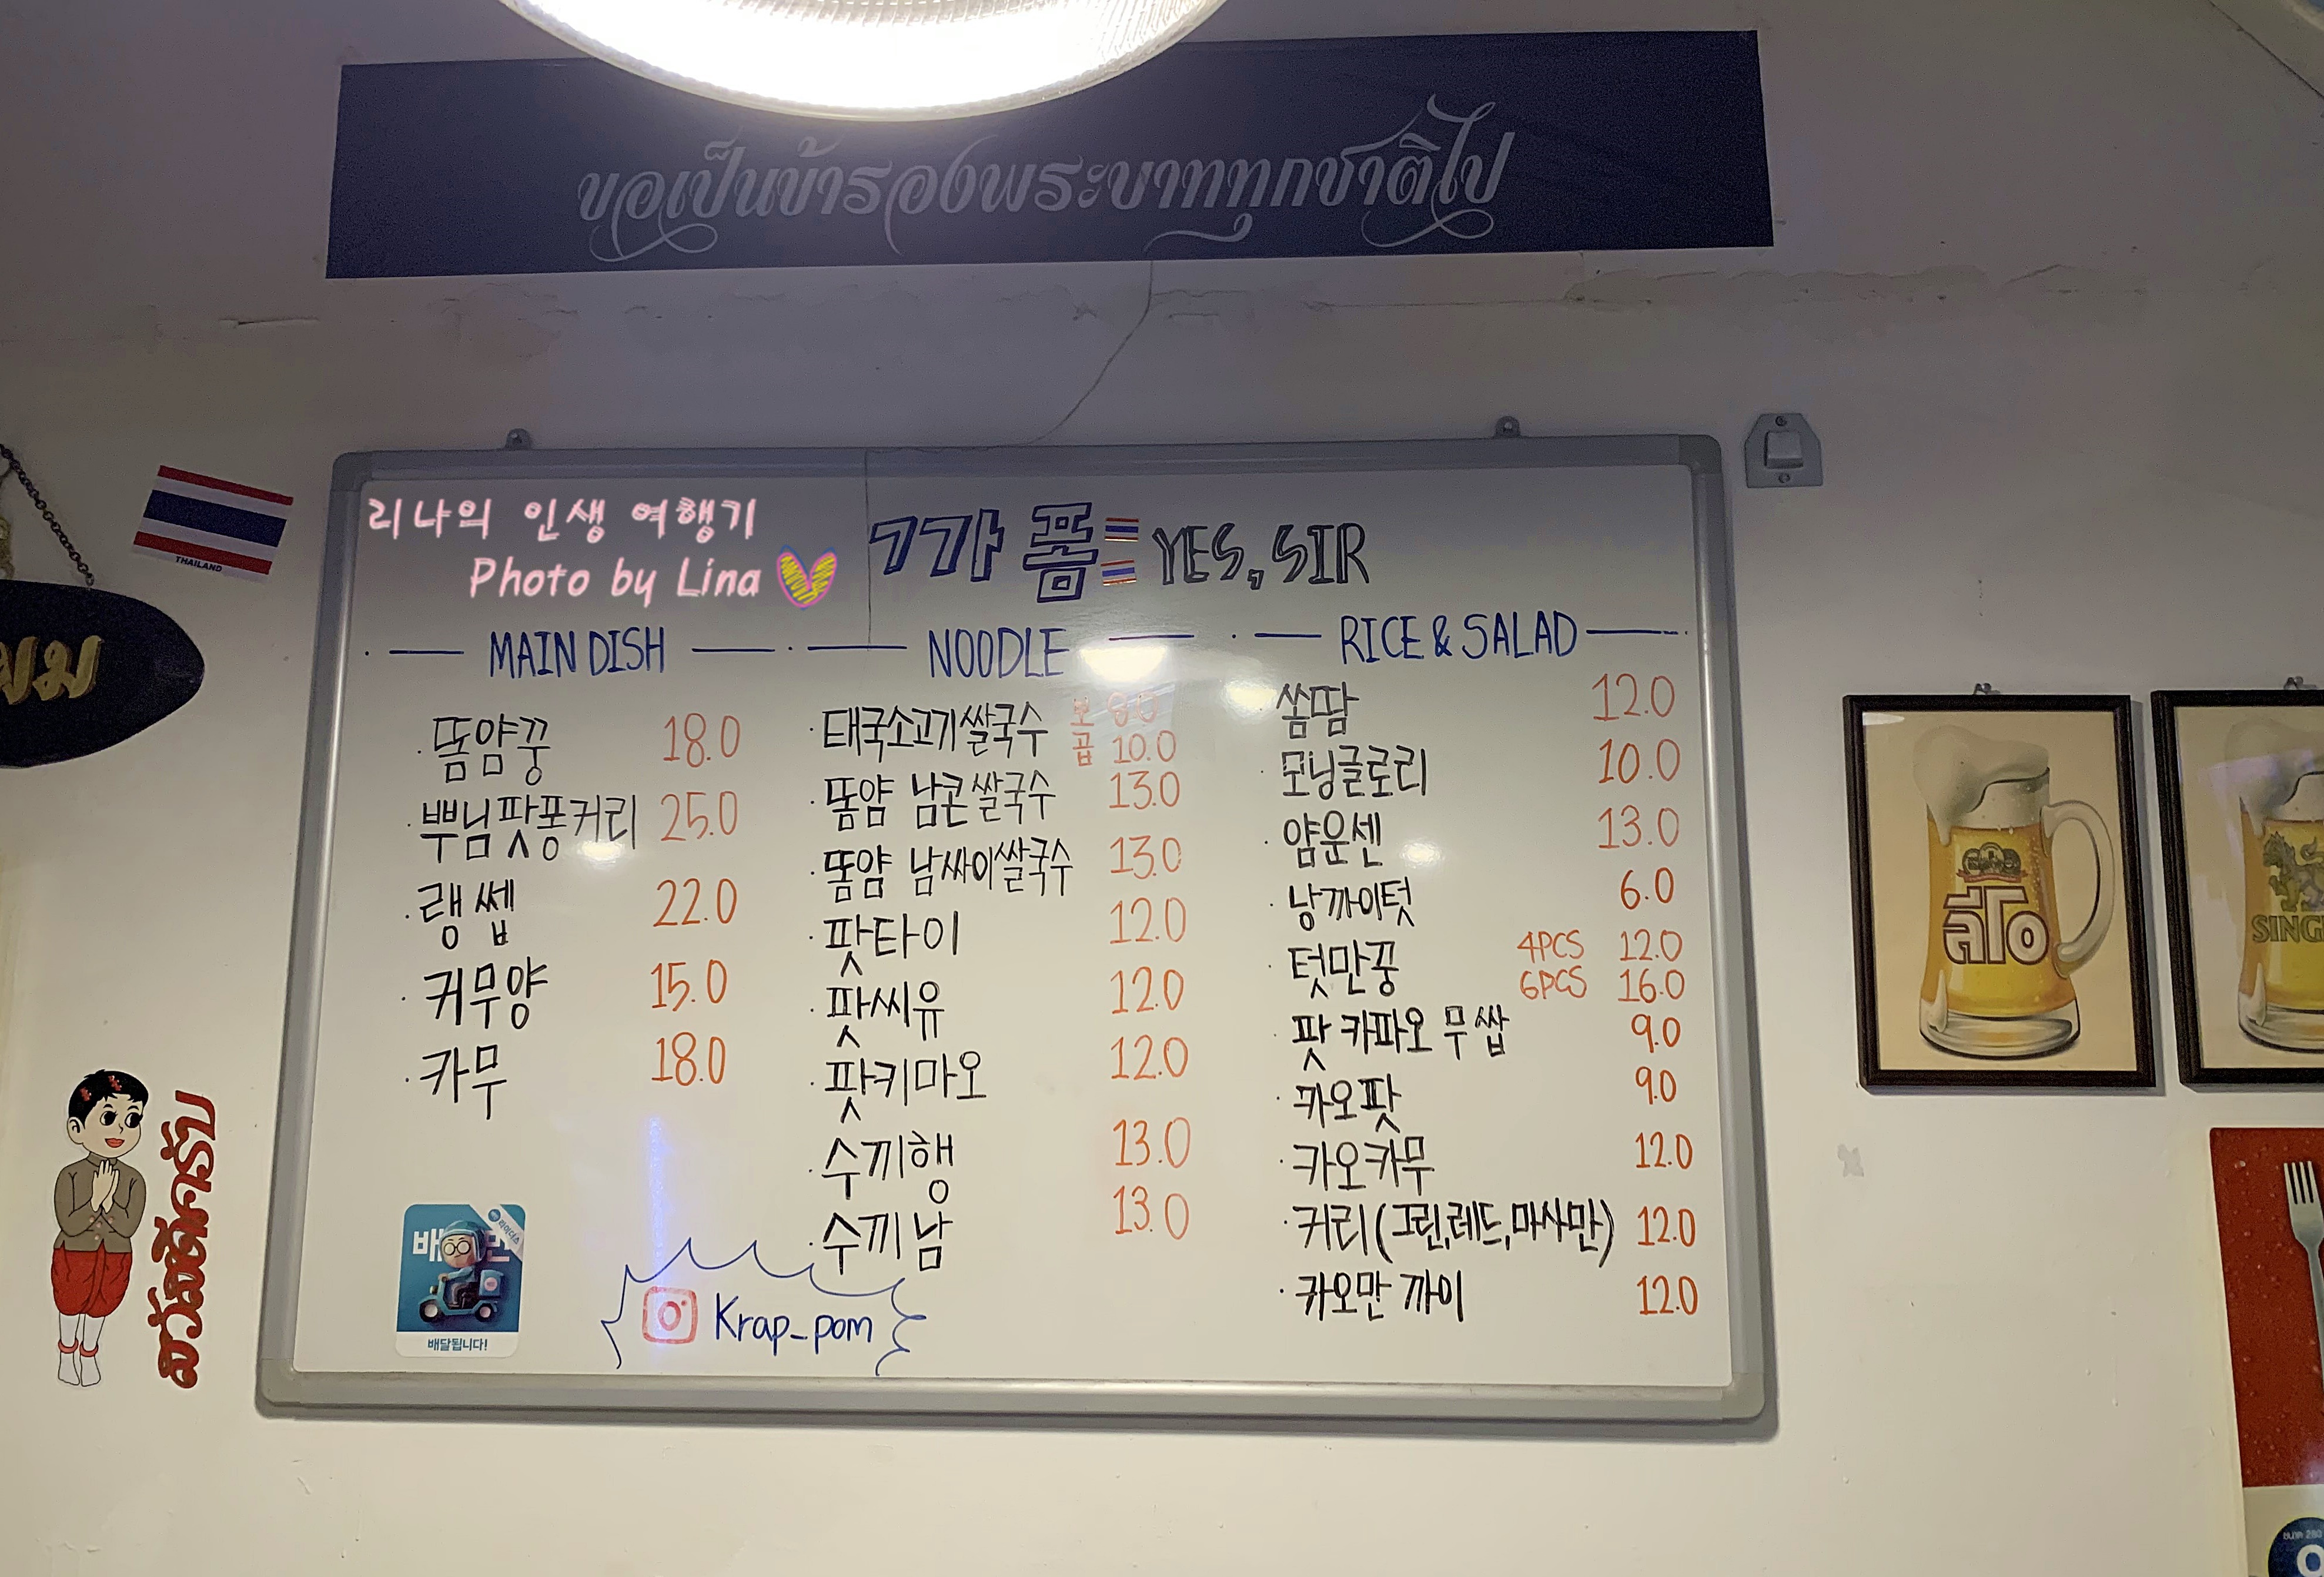 ขอเป็นข้ารองพระบาททุกชาติไป
THAILAND
ผม
สวัสดีครับ
리나의 인생 여행기
Photo by Lina
끄랍 폼 YES, SIR
MAIN DISH
· 똠얌꿍 18.0
· 뿌님팟퐁커리 25.0
· 랭쎕 22.0
· 커무양 15.0
· 카무 18.0
배달됩니다!
Krap_pom
NOODLE
· 태국소고기쌀국수 보 8.0
곱 10.0
· 똠얌 남콘쌀국수 13.0
· 똠얌 남싸이쌀국수 13.0
· 팟타이 12.0
· 팟씨유 12.0
· 팟키마오 12.0
· 수끼행 13.0
· 수끼남 13.0
RICE & SALAD
· 쏨땀 12.0
· 모닝글로리 10.0
· 얌운센 13.0
· 낭까이텃 6.0
· 텃만꿍 4PCS 12.0
6PCS 16.0
· 팟 카파오 무쌉 9.0
· 카오팟 9.0
· 카오카무 12.0
· 커리(그린,레드,마사만) 12.0
· 카오만 까이 12.0
ลีโอ